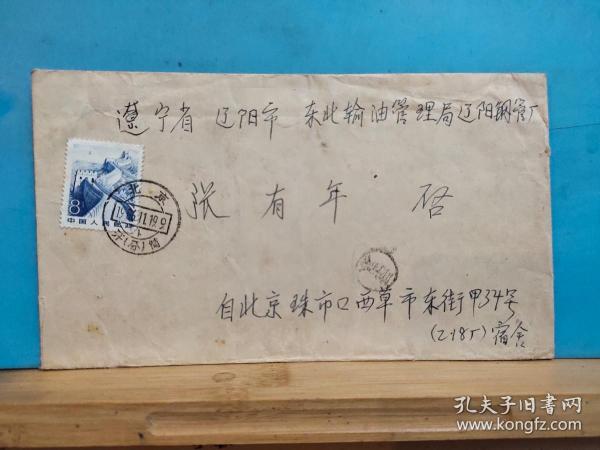 遼宁省 辽阳市 东北输油管理局辽阳钢管厂
8
中国人民邮政
北京
张有年 启
自北京珠市口西草市东街甲34号
(2185) 宿舍
孔夫子旧书网
www.kongfz.com